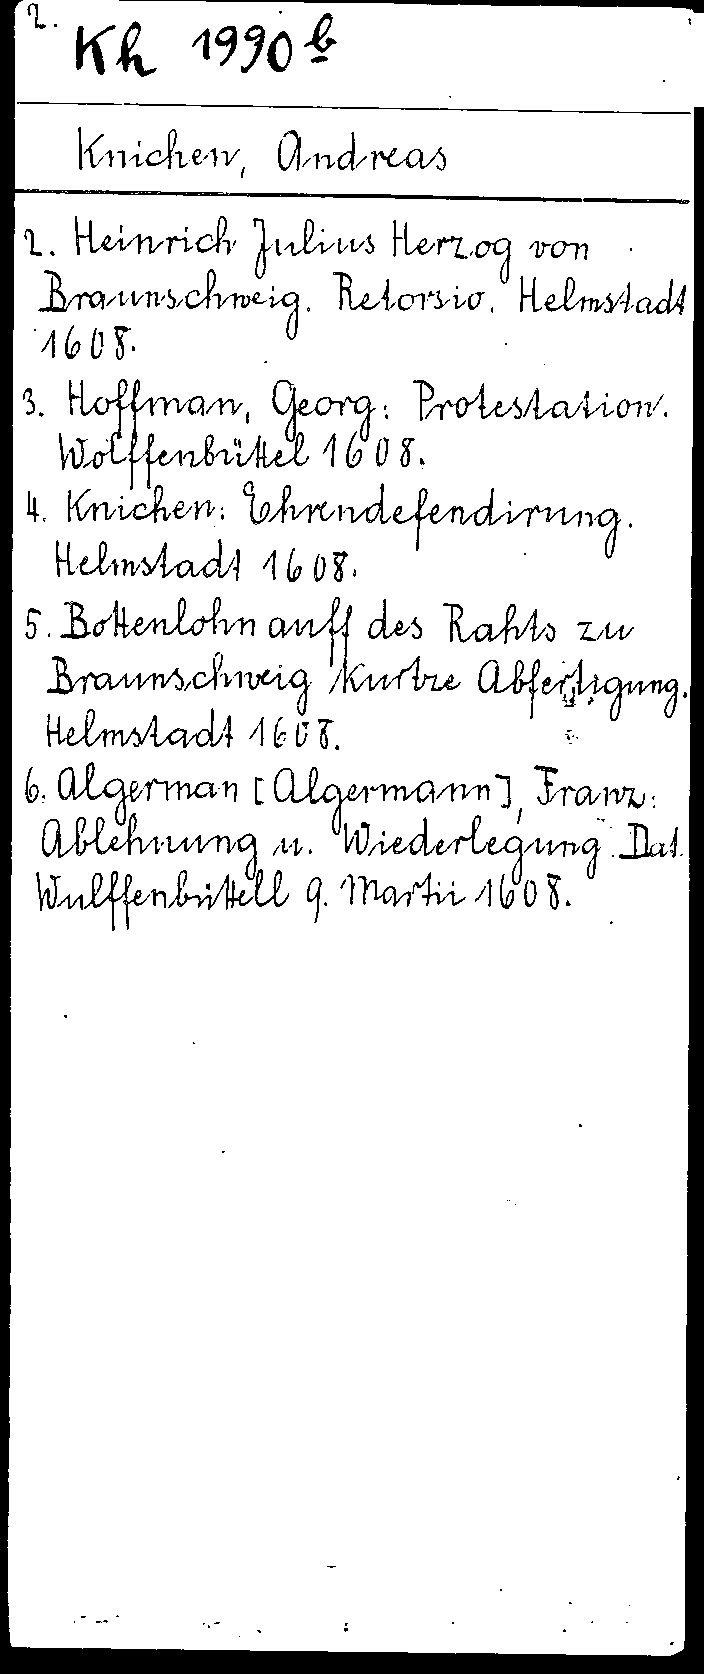 2.
Kh 1990 b
Knichen, Andreas
2. Heinrich Julius Herzog von
Braunschweig. Retorsio. Helmstadt
1608.
3. Hoffman, Georg: Protestation.
Wolffenbüttel 1608.
4. Knichen: Ehrendefendirung.
Helmstadt 1608.
5. Bottenlohn auff des Rahts zu
Braunschweig kurtze Abfertigung.
Helmstadt 1608.
6. Algerman [Algermann], Franz:
Ablehnung u. Wiederlegung. Dat.
Wulffenbüttell 9. Martii 1608.